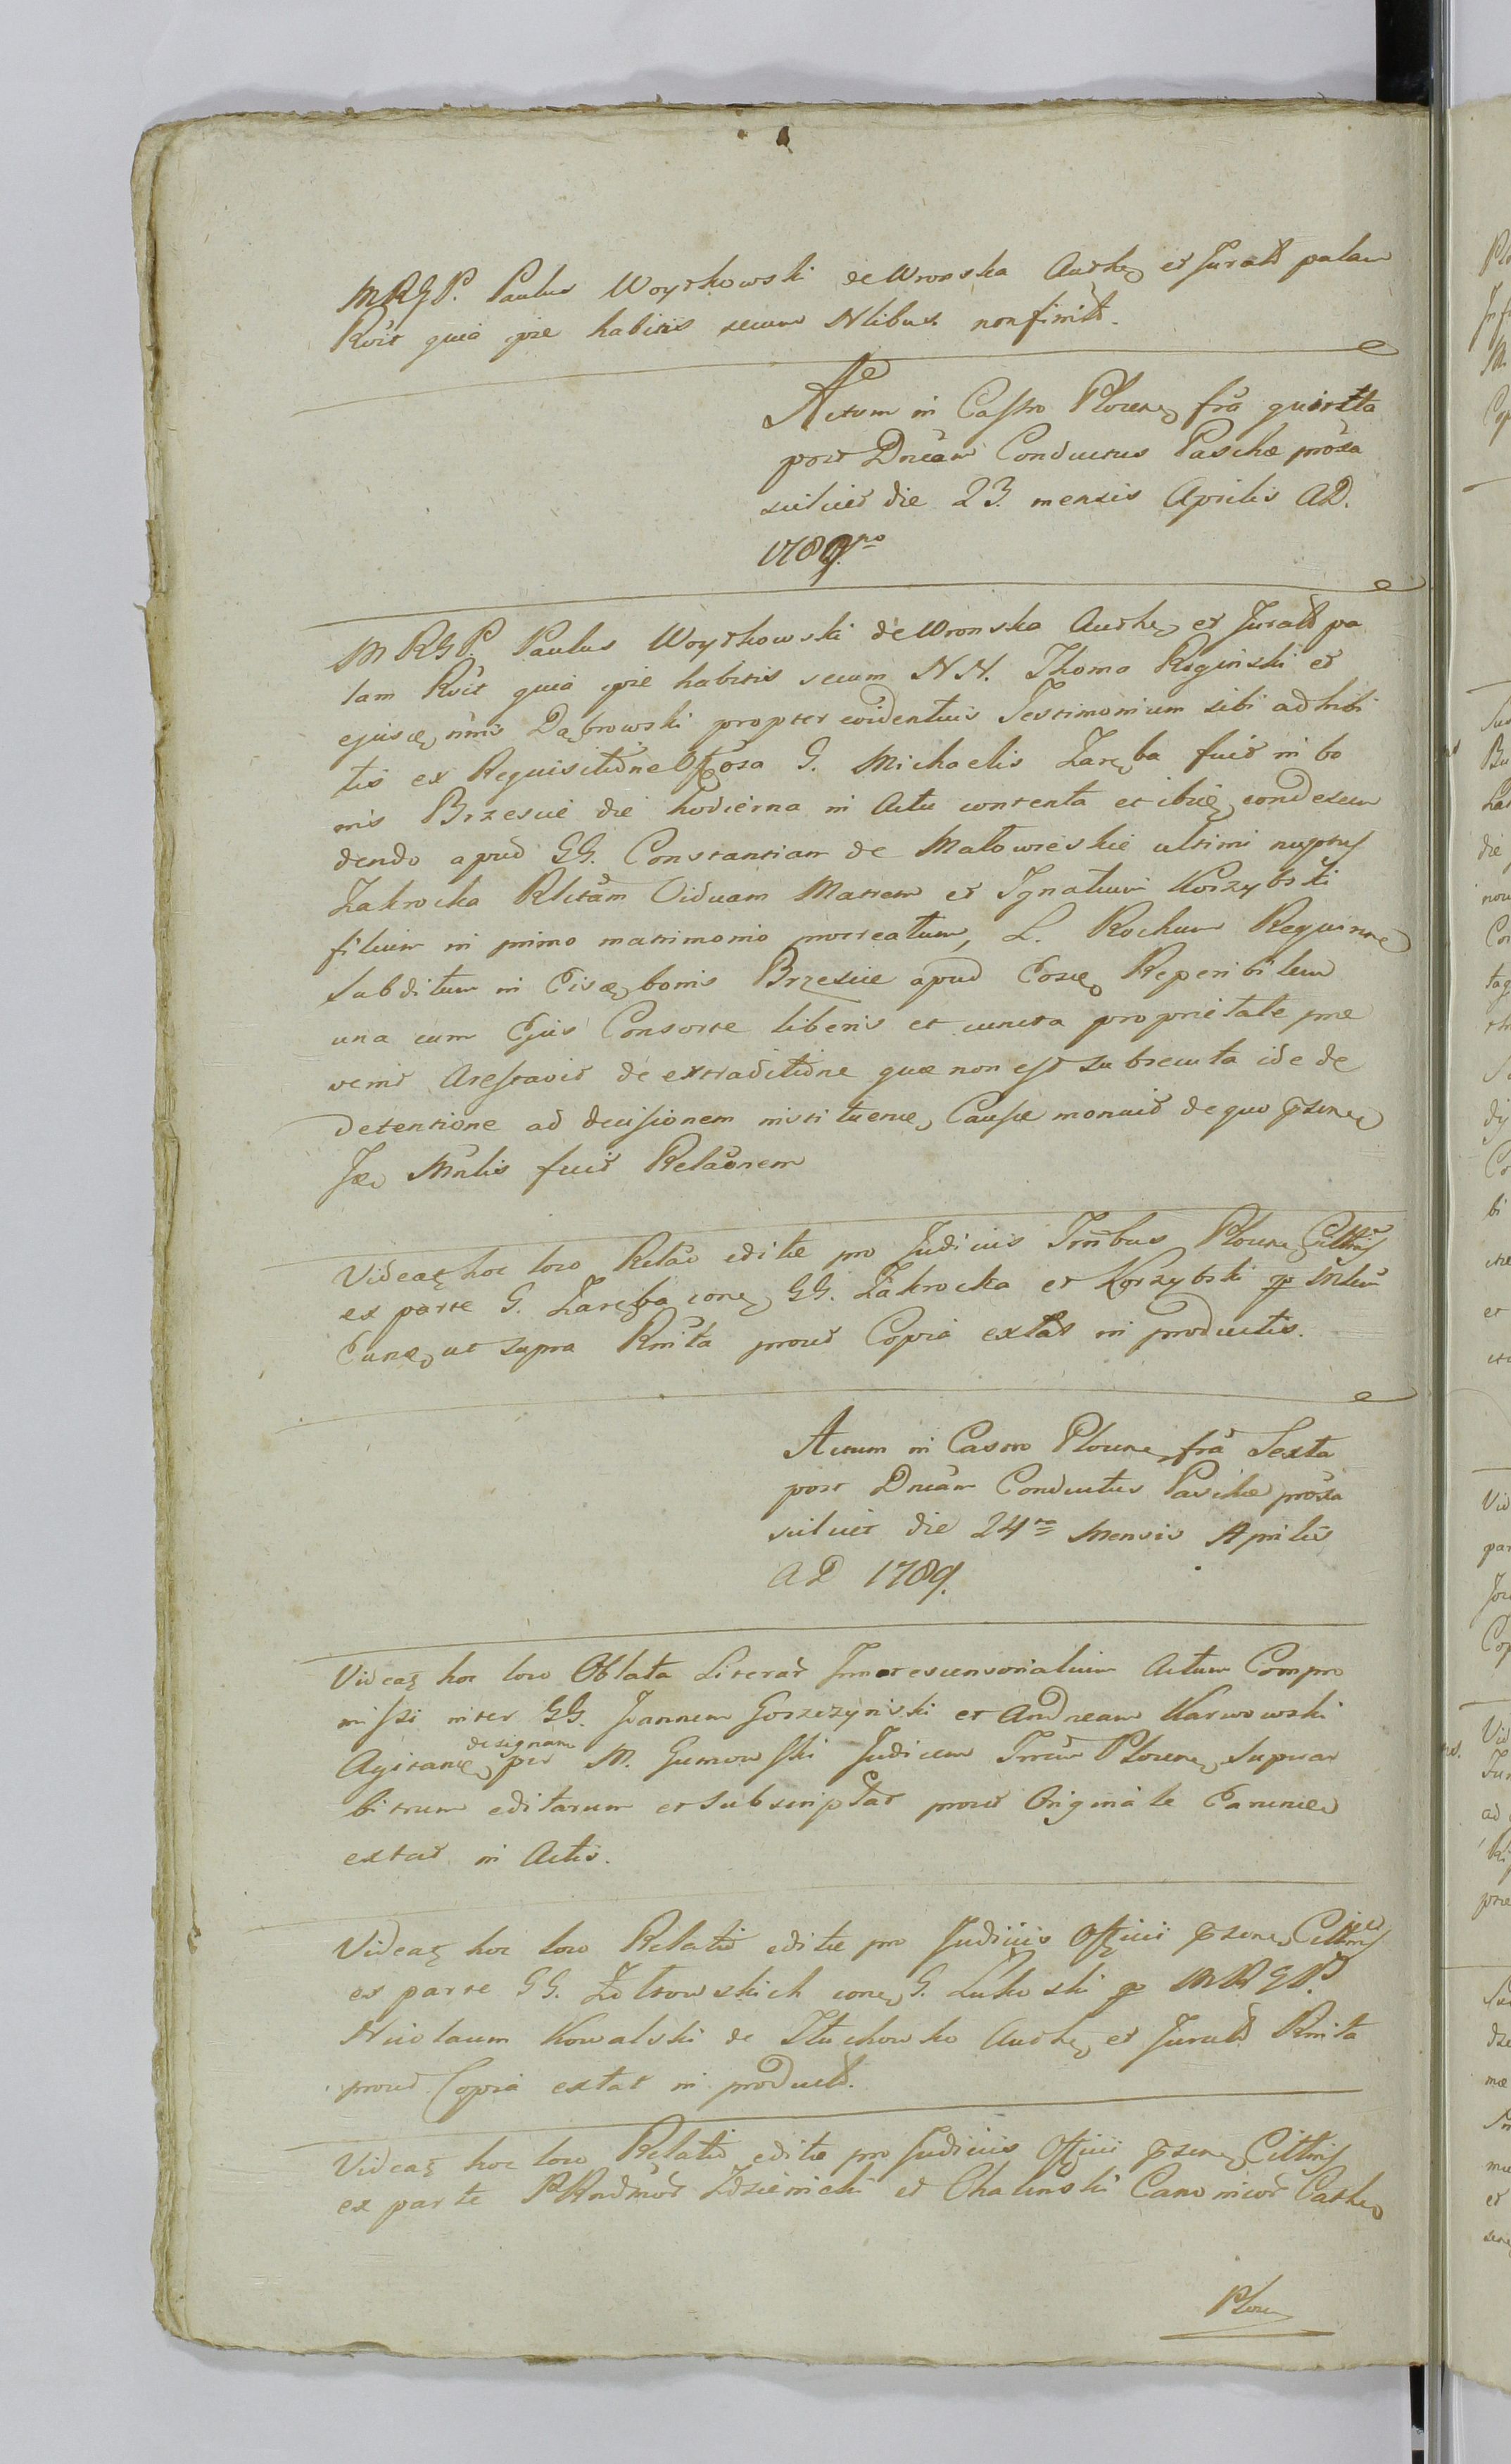 MRGP. Paulus Woytkowski de Wronska Authen et Juratt palam
Rcvit quia ipse habitis secum Nlibus non finitt.
Actum in Castro Plocen fra quintta
post Dncam Conductus Paschæ proxa
scilicet die 23. mensis Aprilis AD.
1789no
MRGP. Paulus Woytkowski de Wronska Authen et Juratt pa
lam Rcvit quia ipse habitis secum NN. Thoma Roginski et
ejusdem nnis Dąbrowski propter evidentius Testimonium sibi adhibi
tis ex Requisitione G. Michaelis Zaręba fuit in bo
nis Brzescie die hodierna in Actu contenta et ibidem condescen
dendo apud GG. Constantiam de Małowieskie ultimi nuptus
Zakrocka Rlictam Viduam Matrem et Ignatium Korzybski
filium in primo matrimonio procreatum, L. Rochum
Subditum in bonis Brzescie apud Eosdem Reperibilem
una cum Ejus Consorte liberis et cuncta proprietate præ
venit Arestavit de extraditione quæ non est subsecuta ide de
detentione ad decisionem instituenda Causæ monuit de quo pszen
Jae Mnlis fuit Relaonem
Videat hoc loco Relaõ editæ pro Judiciis Trribus Plocen Cittnis
ex parte G. Zaręba con GG. Zakrocka et Korzybski p Mnlem
Eund ut supra Rnita prout Copia extat in productis.
Actum in Castro Plocen fra Sexta
post Dncam Conductus Paschæ proxa
scilicet die 24ta Mensis Aprilis
AD 1789.
Videat hoc loco Oblata Literar Innotescensorialium Actum Compro
missi inter GG. Joannem Goszczynski et Andream Karwowski
designan
Agitand per M. Gumowski Judicem Trrem Plocen Suprar
bitrum editarum et Subscriptar prout Originale Earund
extat in Actis.
Videat hoc loco Relatio editæ pro Judiciis Officii pszen Cittnis
ex parte GG. Zółtowskich con G. Łukoski p MRGP.
Nicolaum Kowalski de Stuchowko Authen et Juratt Rnita
prout Copia extat in product.
Videat hoc loco Relatio editæ pro Judiciis Officii pszen Cittnis
ex parte RRndmor Zdzienicki et Chalinski Canonicor Cathed
Plocen